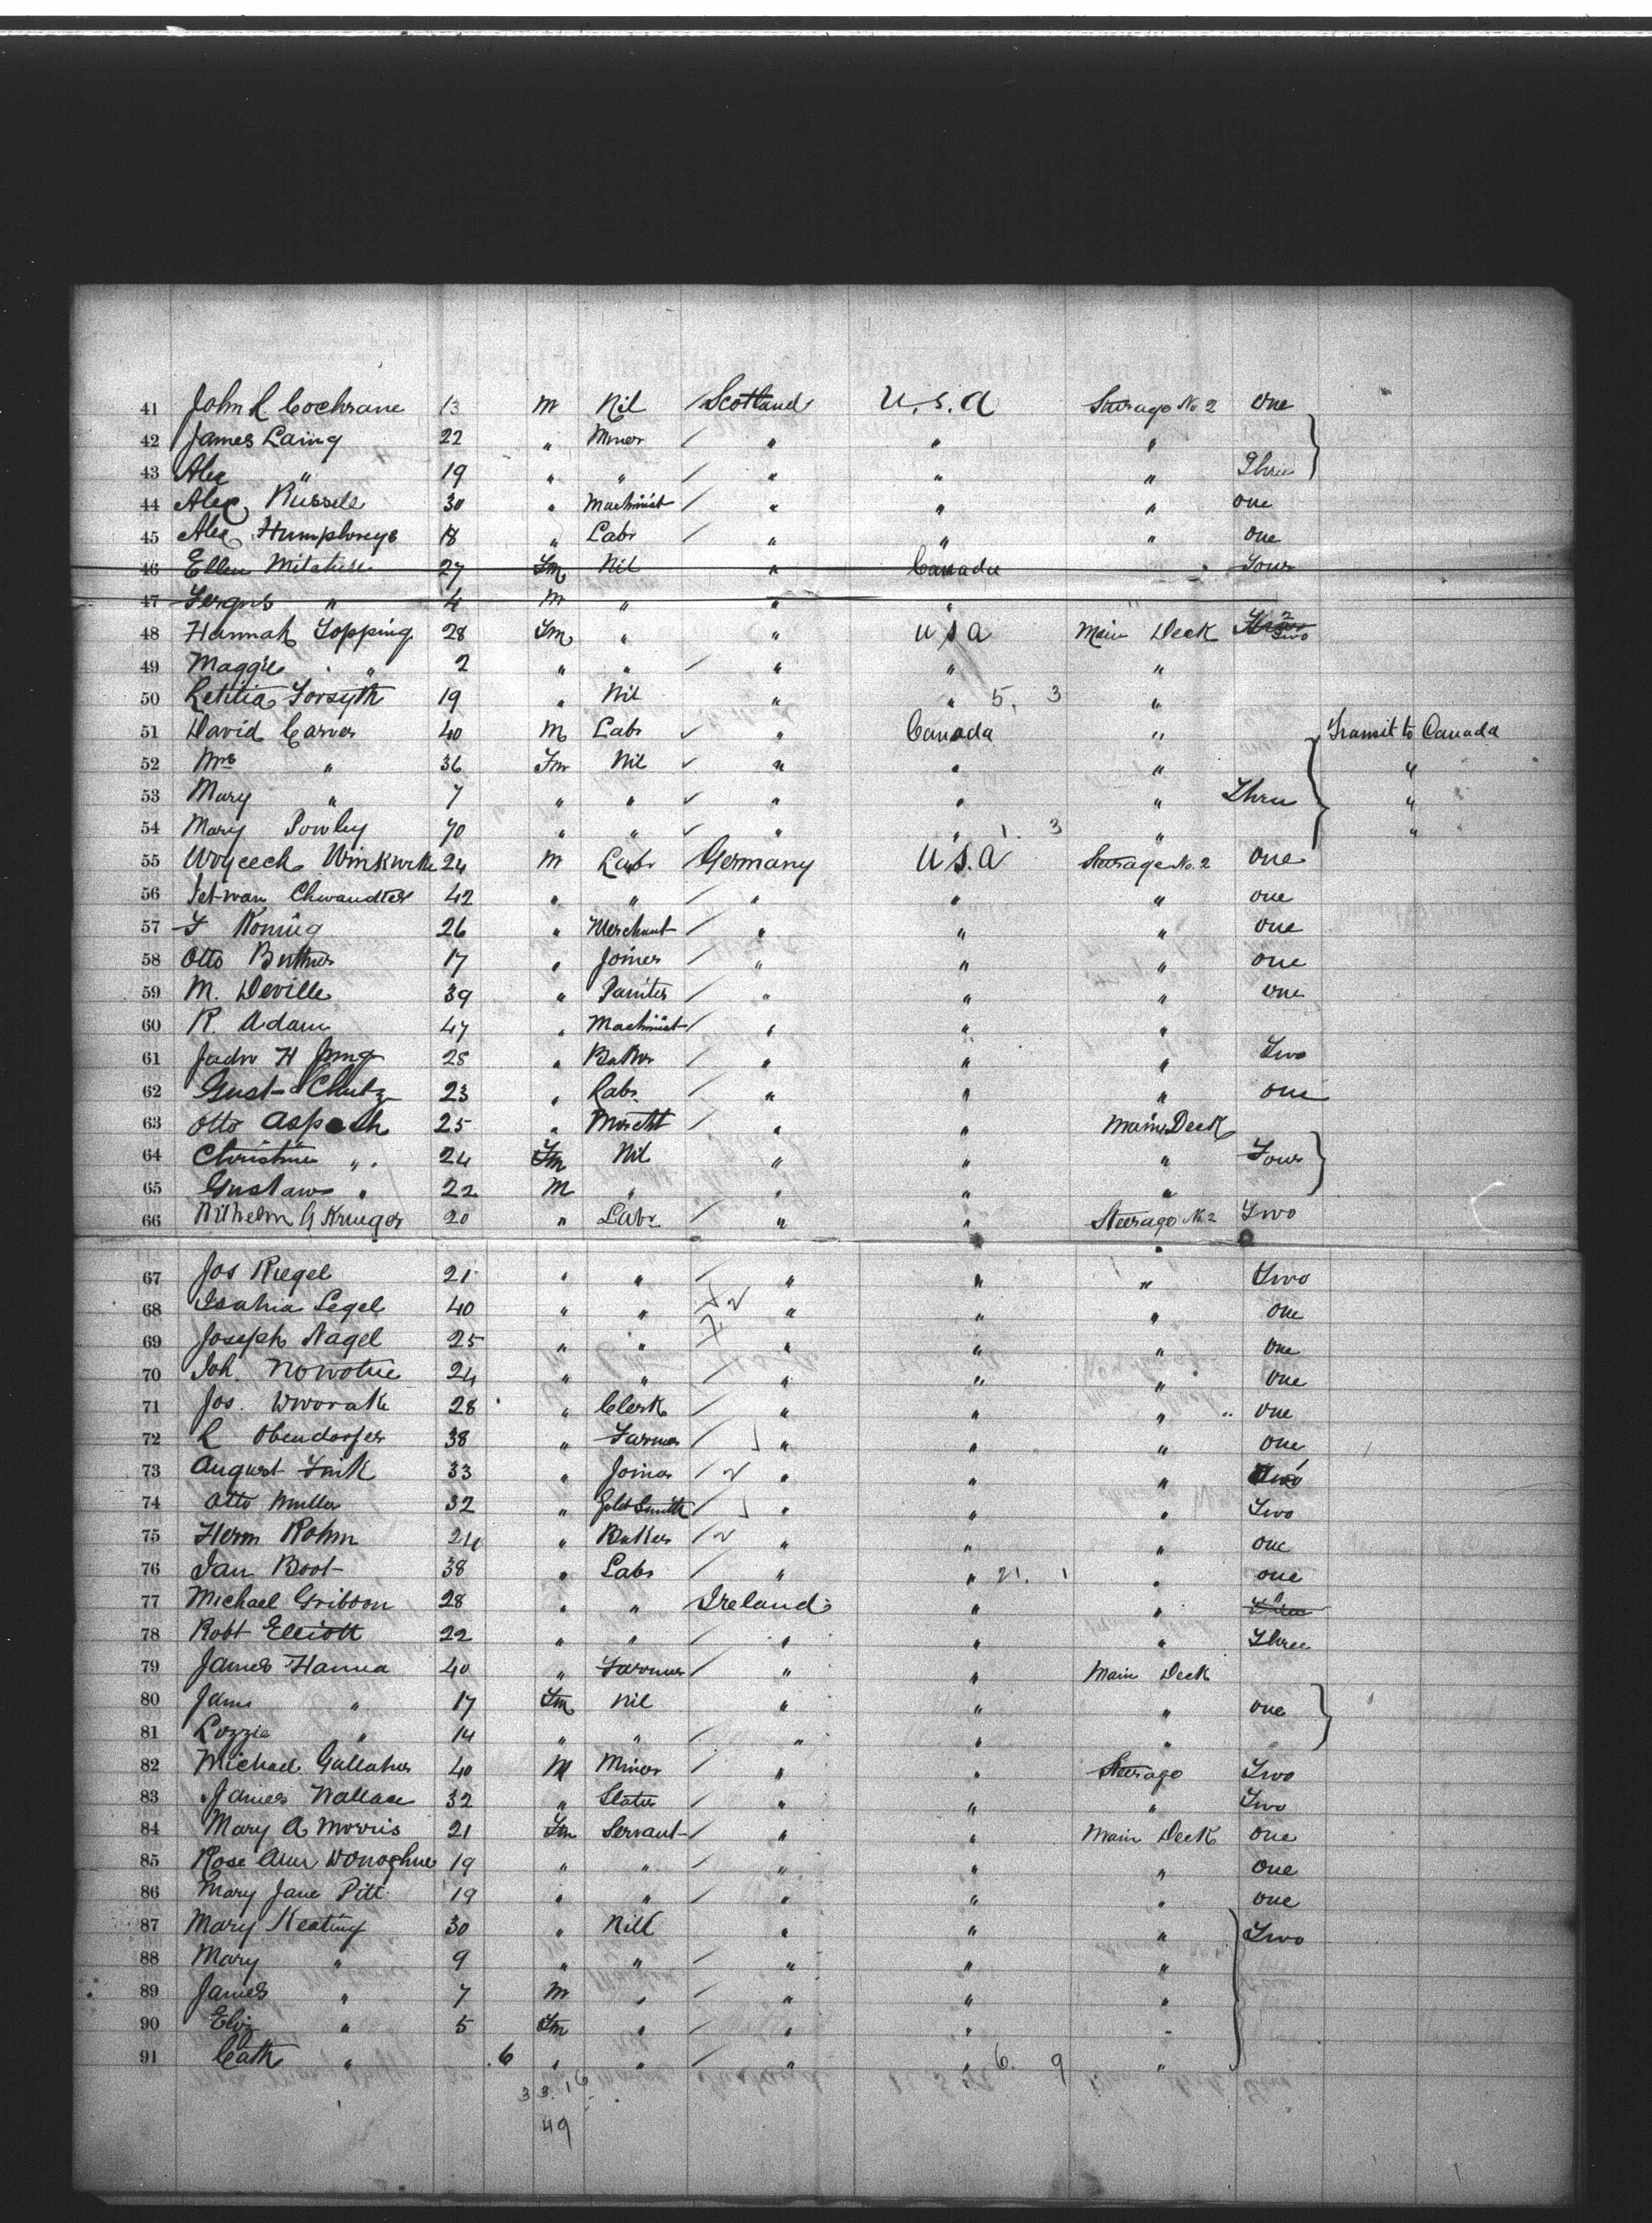 41 John R Cochrane 13 m Nil Scotland U.S.A Steerage No 2 one
42 James Laing 22 " Miner / " " "
43 Alex " 19 " " / " " " Three
44 Alex Russell 30 " Machinist / " " " one
45 Alex Humphreys 18 " Labr / " " " one
46 Ellen Mitchell 27 Fm Nil " Canada " Four
47 Fergus " 4 m " " " "
48 Hannah Topping 28 Fm " " U S A Main Deck Two
49 Maggie " 2 " " / " " "
50 Letitia Forsyth 19 " Nil " " 5. 3 "
51 David Carver 40 M Labr ✓ " Canada " Transit to Canada
52 Mrs " 36 Fm Nil ✓ " " " "
53 Mary " 7 " " ✓ " " " Three "
54 Mary Powley 70 " " ✓ " " 1. 3 " "
55 Woycech 24 m Labr Germany U.S.A Steerage No. 2 one
56 42 " " / " " " one
57 Koning 26 " Merchant / " " " one
58 Otto 17 " Joiner / " " " one
59 M. Deville 39 " Painter / " " " one
60 R. Adam 47 " Machinist / " " "
61 H Jung 28 " Baker / " " " Two
62 Gust 23 " Labr / " " " one
63 Otto 25 " Mercht / " " Main Deck
64 Christine " 24 Fm Nil " " " Four
65 Gustaw " 22 M " " " "
66 Wilhelm G Krueger 20 " Labr / " " Steerage No 2 Two
67 Jos Riegel 21 " " / " " " Two
68 Isahia Segel 40 " " " " " one
69 Joseph Nagel 25 " " " " " one
70 Joh. Nowotne 24 " " " " " one
71 Jos. Dworak 28 " Clerk / " " " one
72 L Obendorfer 38 " Farmer / " " " one
73 August Fink 33 " Joiner / " " " Two
74 Otto Muller 32 " Gold Smith / " " " Two
75 Herm Rohm 24 " Baker / " " " one
76 Jan Boot 38 " Labr / " " 21. 1 " one
77 Michael Gribbon 28 " " Ireland " "
78 Robt Elliott 22 " " / " " " Three
79 James Hanna 40 " Farmer / " " Main Deck
80 Jane " 17 Fm Nil " " " one
81 Lizzie " 14 " " / " " "
82 Michael Gallaher 40 M Miner / " " Steerage Two
83 James Wallace 32 " Slater / " " " Two
84 Mary A Morris 21 Fm Servant / " " Main Deck one
85 Rose Ann Donoghue 19 " " / " " " one
86 Mary Jane Pitt 19 " " / " " " one
87 Mary Keating 30 " Nill " " " Two
88 Mary " 9 " " / " " "
89 James " 7 m " / " " "
90 Eliz " 5 Fm " / " " "
91 Cath " .6 " " / " " 6. 9 "
33. 16
49